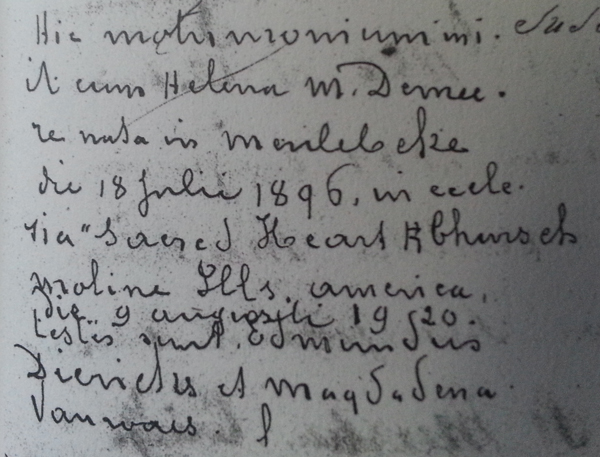 Hic matrimonium ini.
it cum Helena M. Demee.
re nata in Meulebeke
die 18 Julii 1896, in eccle.
sia "Sacred Heart
Moline Ills. america,
die 9 augusti 1920.
testes sunt. Edmundus
et Magdadena